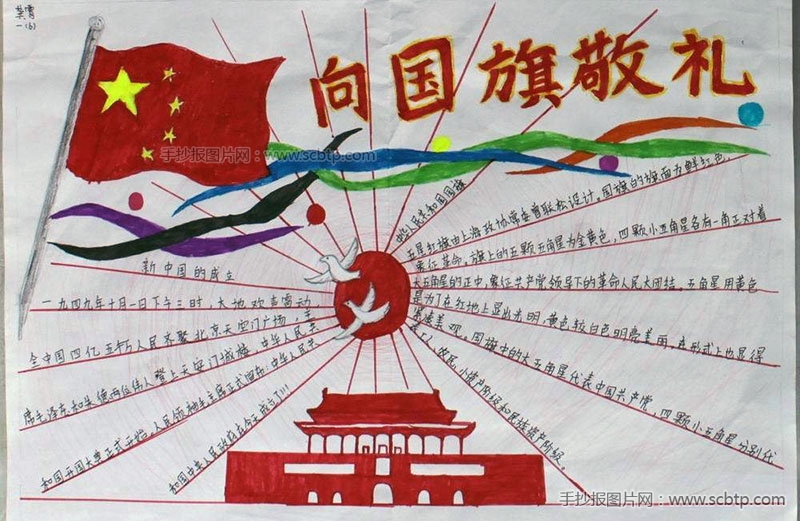 一(6)
向国旗敬礼
手抄报图片网：www.scbtp.com
新中国的成立
一九四九年十月一日下午三时，大地欢声雷动，
全中国四亿五千万人民齐聚北京天安门广场，主
席毛泽东和朱德两位伟人登上天安门城楼 中华人民共
和国开国大典正式开始，人民领袖毛主席正式宣布：中华人民共
和国中央人民政府在今天成立了!!!
中华人民共和国国旗
五星红旗由上海政协常委曾联松设计。国旗的旗面为鲜红色，
象征革命，旗上的五颗五角星为金黄色，四颗小五角星各有一角正对着
大五角星的正中，象征共产党领导下的革命人民大团结，五角星用黄色
是为了在红地上显出光明，黄色较白色明亮美丽，在形式上也显得
美观，国旗中的大五角星代表中国共产党，四颗小五角星分别代
表工人、农民、小资产阶级和民族资产阶级。
手抄报图片网：www.scbtp.com